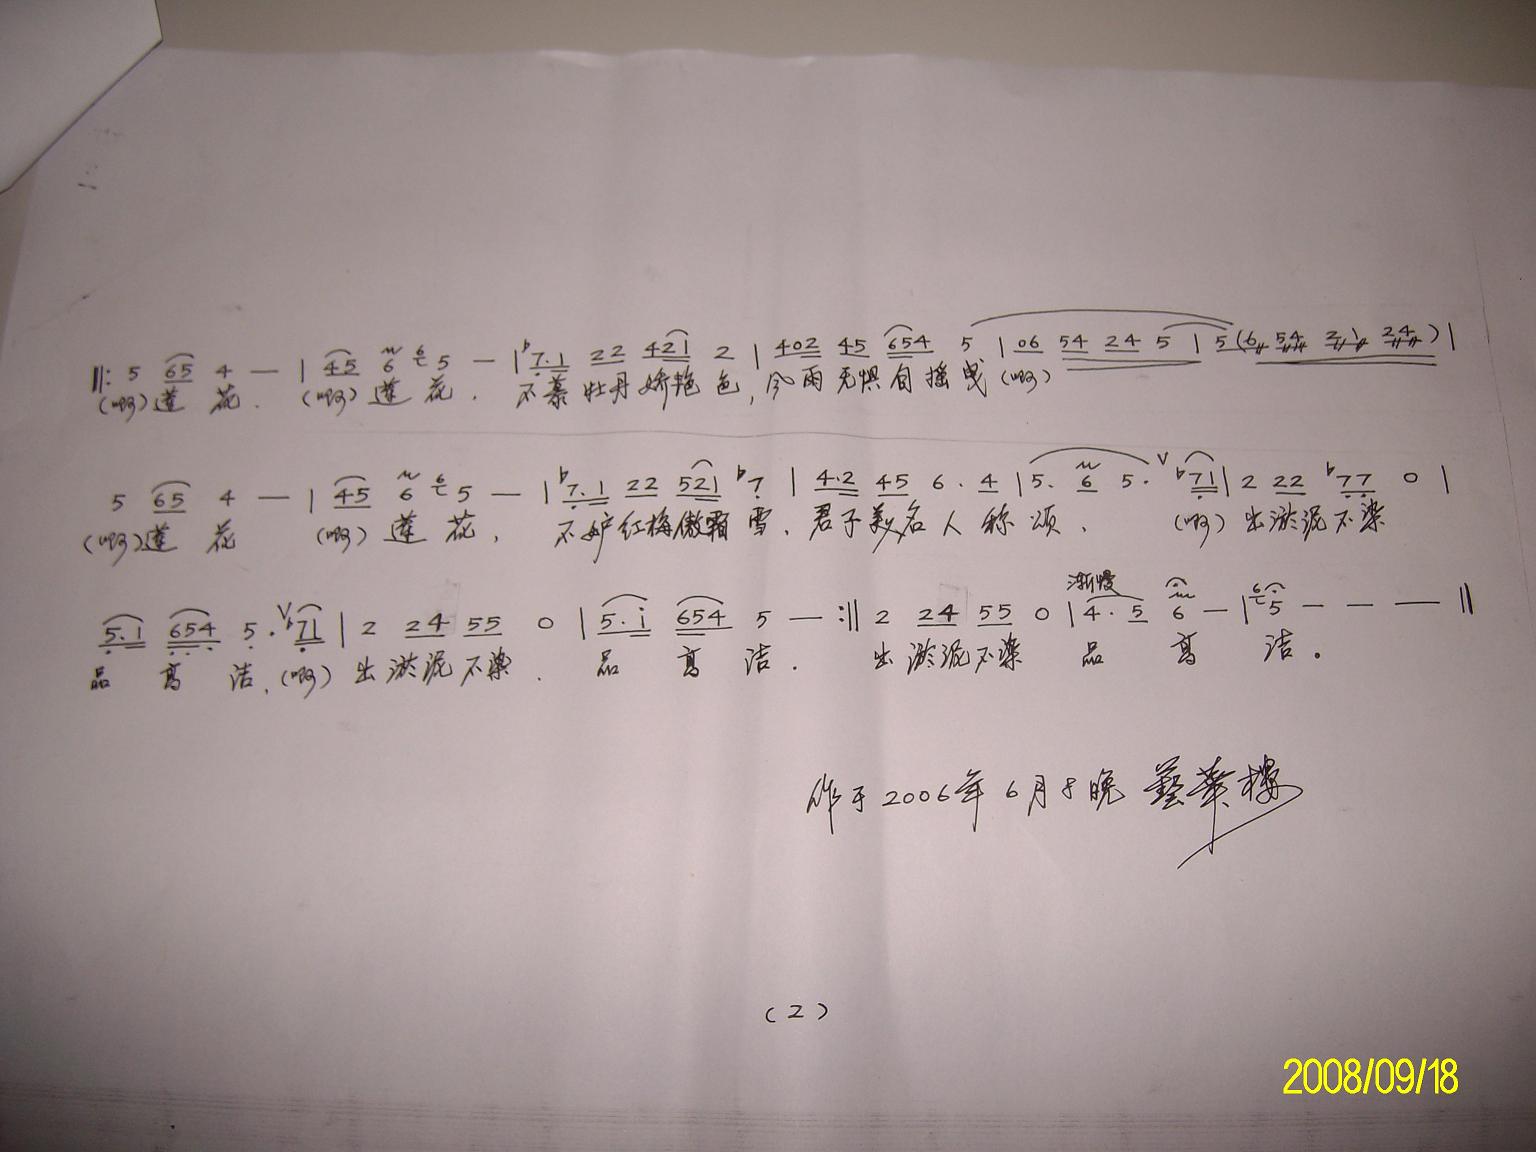 ‖: 5 65 4 — | 45 6 6 5 — | ♭7.1 22 421 2 | 402 45 654 5 | 06 54 24 5 | 5 (6 54 2 24) |
(啊)莲花. (啊)莲花. 不慕牡丹娇艳色,风雨无惧自摇曳(啊)
5 65 4 — | 45 6 6 5 — | ♭7.1 22 521 ♭7 | 4.2 45 6. 4 | 5. 6 5. V ♭71 | 2 22 ♭77 0 |
(啊)莲花 (啊)莲花, 不妒红梅傲霜雪. 君子美名人称颂. (啊)出淤泥不染
渐慢
5.1 654 5. V ♭71 | 2 24 55 0 | 5.i 654 5 — :‖ 2 24 55 0 | 4. 5 6 — | 6 5 — — — ‖
品高洁,(啊)出淤泥不染. 品高洁. 出淤泥不染 品高洁.
作于2006年6月8晚 藝華樓
(2)
2008/09/18